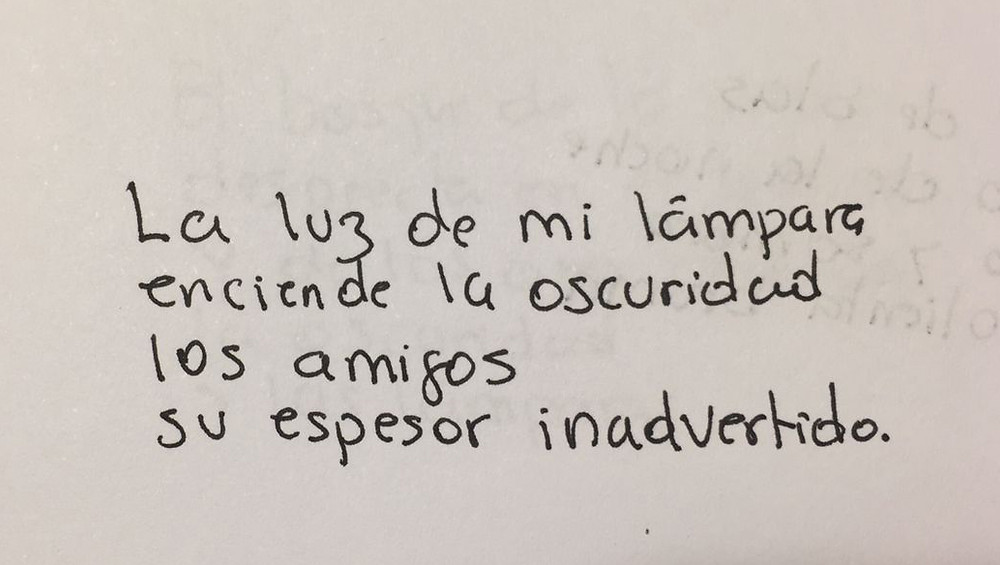 La luz de mi lámpara
enciende la oscuridad
los amigos
su espesor inadvertido.